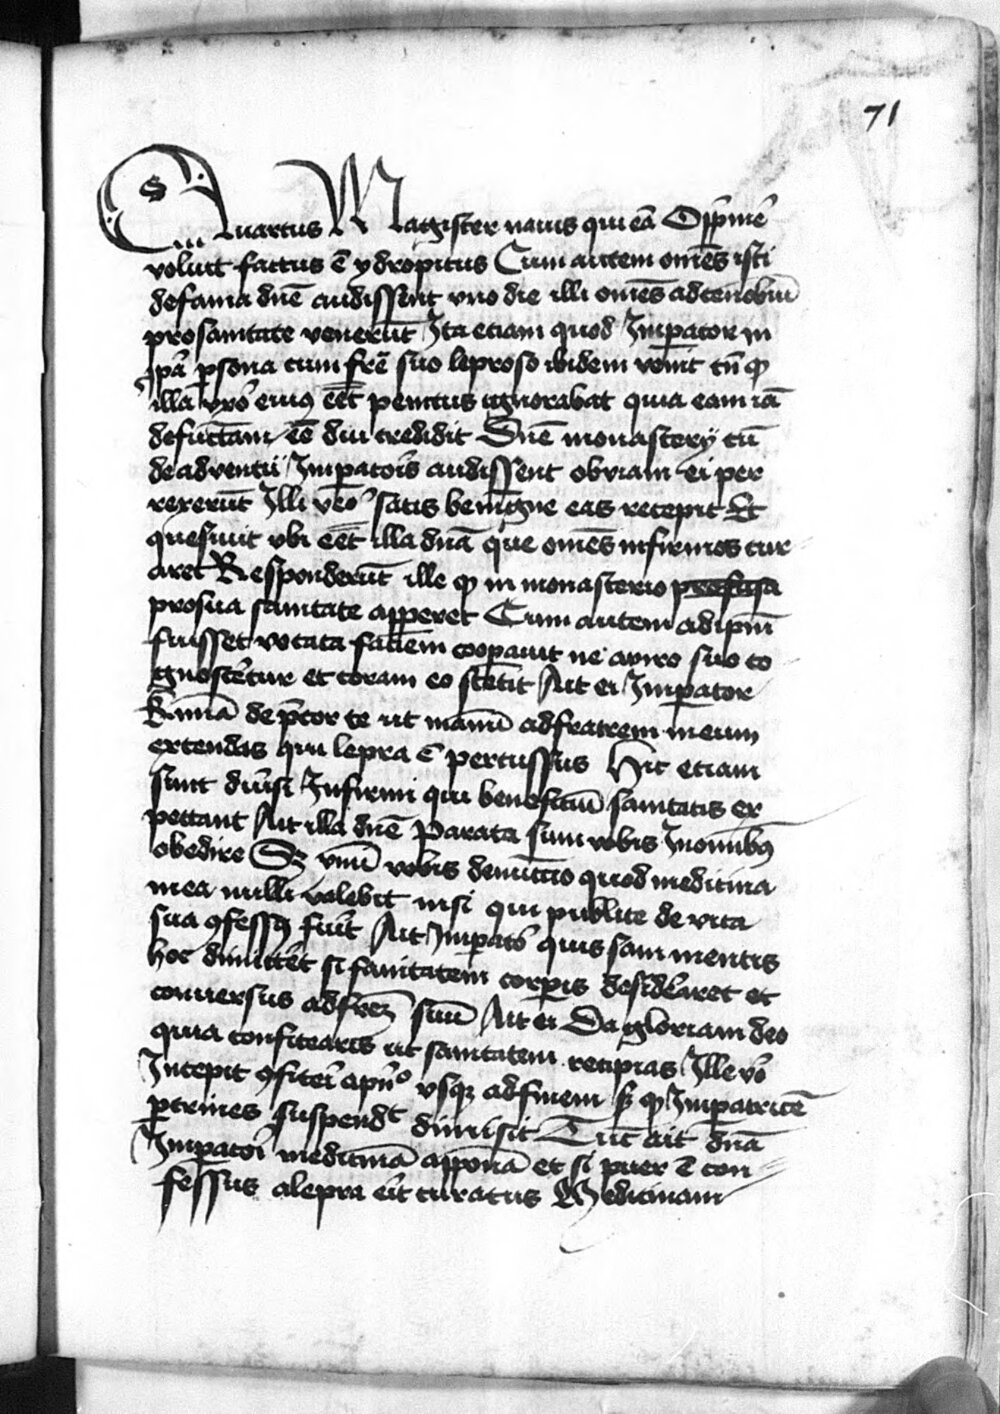 71
Quartus Magister nauis qui eā Opp̄me̅
voluit factus ē ydropicus Cum autem om̄es isti
de fama dn̄e audissent vno die illi om̄es ad cenobiū
pro sanitate venerūt Ita etiam quod Imperator in
ip̄a p̱sona cum fr̄e suo leproso ibidem venit tn̄ qͥ
illā vxō eiꝰ eēt penitus ignorabat quia eam iā
defūctam eē diu credidit Dn̄e monasterij cū
de aduentu Impatoris audissent obuiam ei per
rexerūt Illi v̄o satis benigne eas recepit Et
quesiuit vbi eēt illa dn̄a que om̄es infirmos cur
aret Responderūt ille qͥ in monasterio
pro sua sanitate apperet Cum autem ad ip̄m
fuisset vocata faciem coopauit ne a viro suo co
gnosc̄etur et coram eo stetit Ait ei Imperator
dep̄cor te ut manū ad fratrem meum
extendas qui lepra ē percussus Hic etiam
sunt diūsi Infirmi qui beneficiū sanitatis ex
pectant Ait illa dn̄e Parata sum vobis In om̄ibꝰ
obedire Sꝫ vnū vobis denūcio quod medicina
mea nulli valebit nisi qui publice de vita
sua ꝯfessꝰ fuīt Ait Impatō quis san mentis
hoc dimitt̄et si sanitatem corp̱is desid̄aret et
conuersus ad frēꝫ suū Ait ei Da gloriam deo
quia confitearis ut sanitatem recipias Ille v̄o
Incepit ꝯfitēi a pn̊ vsqꝫ ad finem sꝫ qͥ Impatricē
p̱ crines suspend̄t dimisit Tūc ait dn̄a
Impatoī medicinā apponā et si puer ē con
fessus a lepra eīt curatus Medicinam